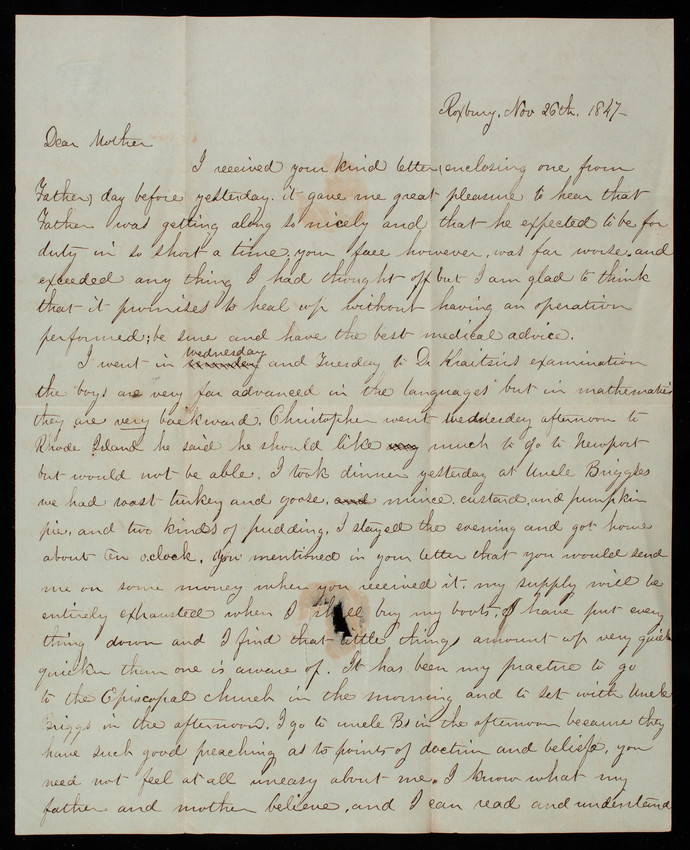 Roxbury, Nov 26th. 1847-
Dear Mother
I received your kind letter, (enclosing one from
Father,) day before yesterday. it gave me great pleasure to hear that
Father was getting along so nicely and that he expected to be for
duty in so short a time, your face however, was far worse, and
exceeded any thing I had thought off but I am glad to think
that it promises to heal up without having an operation
performed; be sure and have the best medical advice.
I went in wednesday and Tuesday to Dr Kraitsirs examination
the boys are very far advanced in the languages but in mathematics
they are very backward. Christopher went wednesday afternoon to
Rhode Island he said he should like very much to go to Newport
but would not be able. I took dinner yesterday at Uncle Briggses
we had roast turkey and goose, and mince, custard, and pumpkin
pie, and two kinds of pudding. I stayed the evening and got home
about ten oclock. You mentioned in your letter that you would send
me on some money when you received it. my supply will be
entirely exhausted when I shall buy my boots, I have put every
thing down and I find that little things amount up very quick
quicker than one is aware of. It has been my practice to go
to the Episcopal church in the morning and to set with Uncle
Briggs in the afternoon. I go to uncle Bs in the afternoon because they
have such good preaching as to points of doctrin and beliefe, you
need not feel at all uneasy about me. I know what my
father and mother believe, and I can read and understand